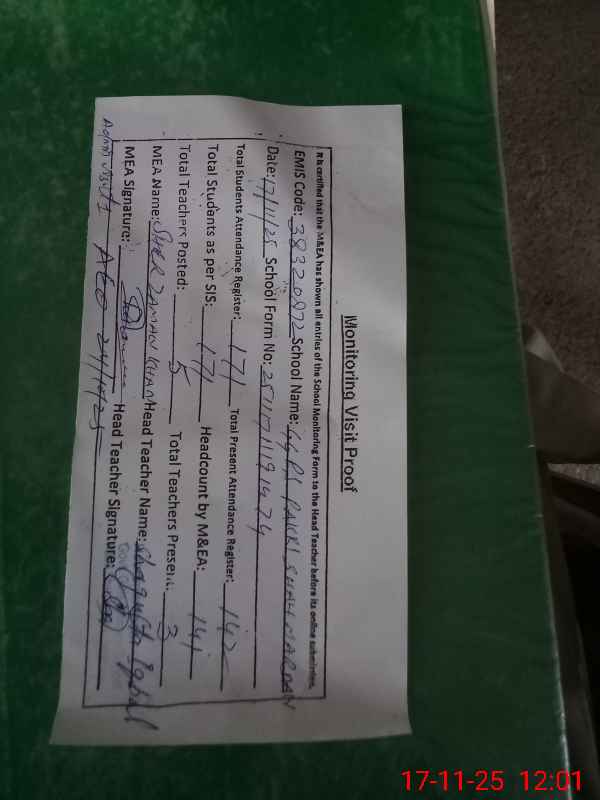 Monitoring Visit Proof
It is certified that the M&EA has shown all entries of the School Monitoring Form to the Head Teacher before its online submission.
EMIS Code: 38320872 School Name: GGPS PAKKI SHAH MARDAN
Date: 17/11/25 School Form No:
Total Students Attendance Register: 171 Total Present Attendance Register: 142
Total Students as per SIS: 171 Headcount by M&EA: 141
Total Teachers Posted: 5 Total Teachers Present: 3
MEA Name: SHER ZAMAN KHAN Head Teacher Name: Shagufta Iqbal
MEA Signature: Head Teacher Signature:
Admn visit: AEO 24/10/25
17-11-25 12:01